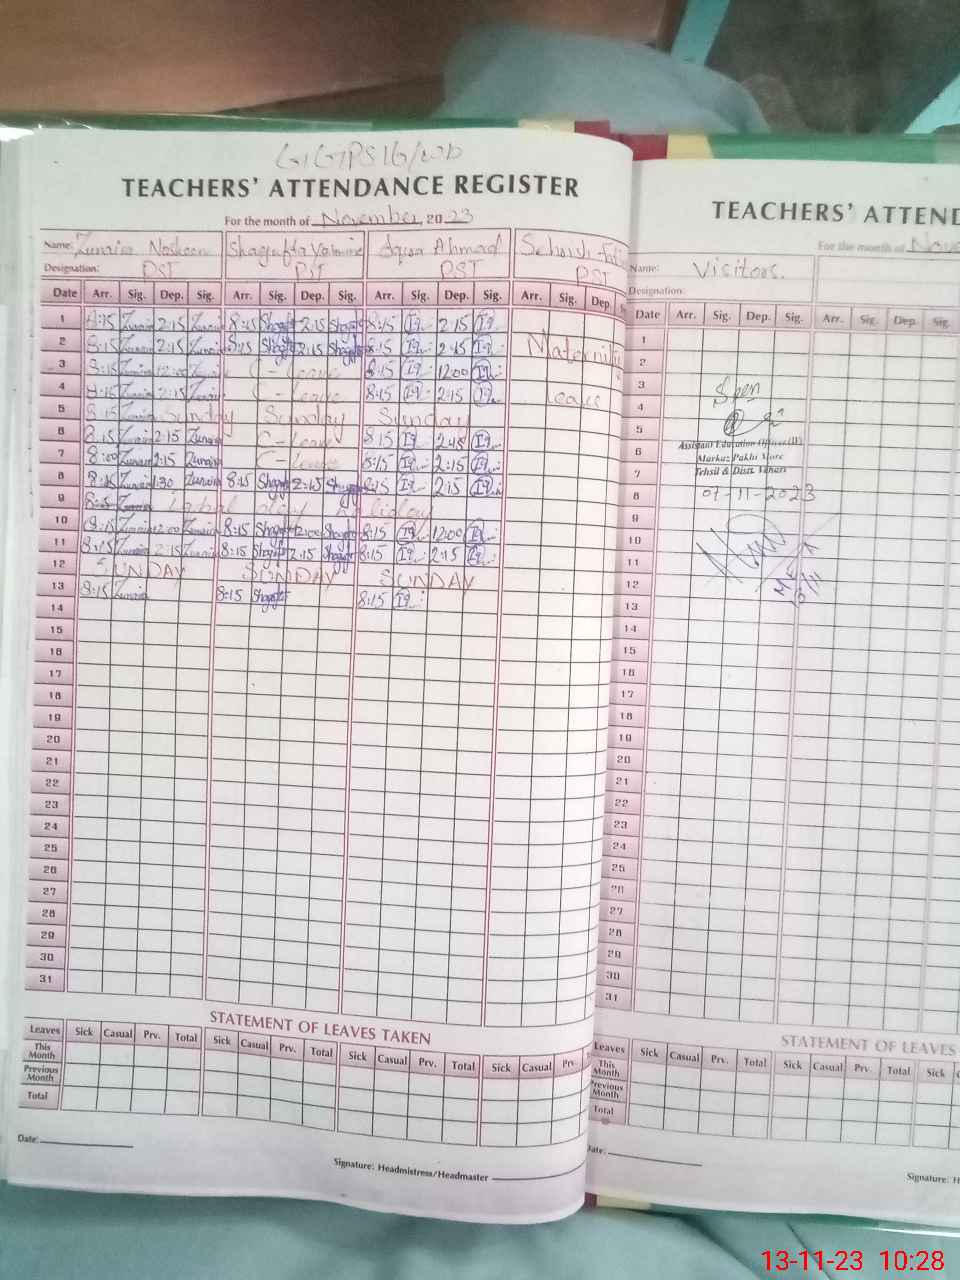 TEACHERS' ATTENDANCE REGISTER
For the month of November 2023
Name: Zunaira Nosheen Shagufta Yasmine Iqra Ahmad
Designation: PST PST PST PST
Date Arr. Sig. Dep. Sig. Arr. Sig. Dep. Sig. Arr. Sig. Dep. Sig. Arr. Sig. Dep.
1 8:15 Zunaira 2:15 Zunaira 8:15 Shagufta 2:15 Shagufta 8:15 Iq 2:15 Iq
2 8:15 Zunaira 2:15 Zunaira 8:15 Shagufta 2:15 Shagufta 8:15 Iq 2:15 Iq Maternity
3 8:15 Zunaira 12:00 Zunaira C-leave 8:15 Iq 12:00 Iq
4 8:15 Zunaira 2:15 Zunaira C-leave 8:15 Iq 2:15 Iq leave
5 8:15 Zunaira Sunday Sunday Sunday
6 8:15 Zunaira 2:15 Zunaira C-leave 8:15 Iq 2:45 Iq
7 8:00 Zunaira 2:15 Zunaira C-leave 8:15 Iq 2:15 Iq
8 8:15 Zunaira 1:30 Zunaira 8:15 Shagufta 2:45 Shagufta 8:15 Iq 2:15 Iq
9 8:15 Zunaira Iqbal day holiday
10 8:15 Zunaira 12:00 Zunaira 8:15 Shagufta 12:00 Shagufta 8:15 Iq 12:00 Iq
11 8:15 Zunaira 2:15 Zunaira 8:15 Shagufta 2:15 Shagufta 8:15 Iq 2:15 Iq
12 SUNDAY SUNDAY SUNDAY
13 8:15 Zunaira 8:15 Shagufta 8:15 Iq
14
15
16
17
18
19
20
21
22
23
24
25
26
27
28
29
30
31
STATEMENT OF LEAVES TAKEN
Leaves Sick Casual Prv. Total Sick Casual Prv. Total Sick Casual Prv. Total Sick Casual Prv.
This Month
Previous Month
Total
Date:
Signature: Headmistress/Headmaster
TEACHERS' ATTEND
For the month of Nove
Name: Visitors.
Designation:
Date Arr. Sig. Dep. Sig. Arr. Sig. Dep. Sig.
1
2
3
4
5
6
7
8
9
10
11
12
13
14
15
16
17
18
19
20
21
22
23
24
25
26
27
28
29
30
31
Assistant Education Officer (W)
Markaz Pakhi More
Tehsil & Distt. Vehari
07-11-2023
STATEMENT OF LEAVES
Leaves Sick Casual Prv. Total Sick Casual Prv. Total Sick
This Month
Previous Month
Total
Date:
Signature: H
13-11-23 10:28